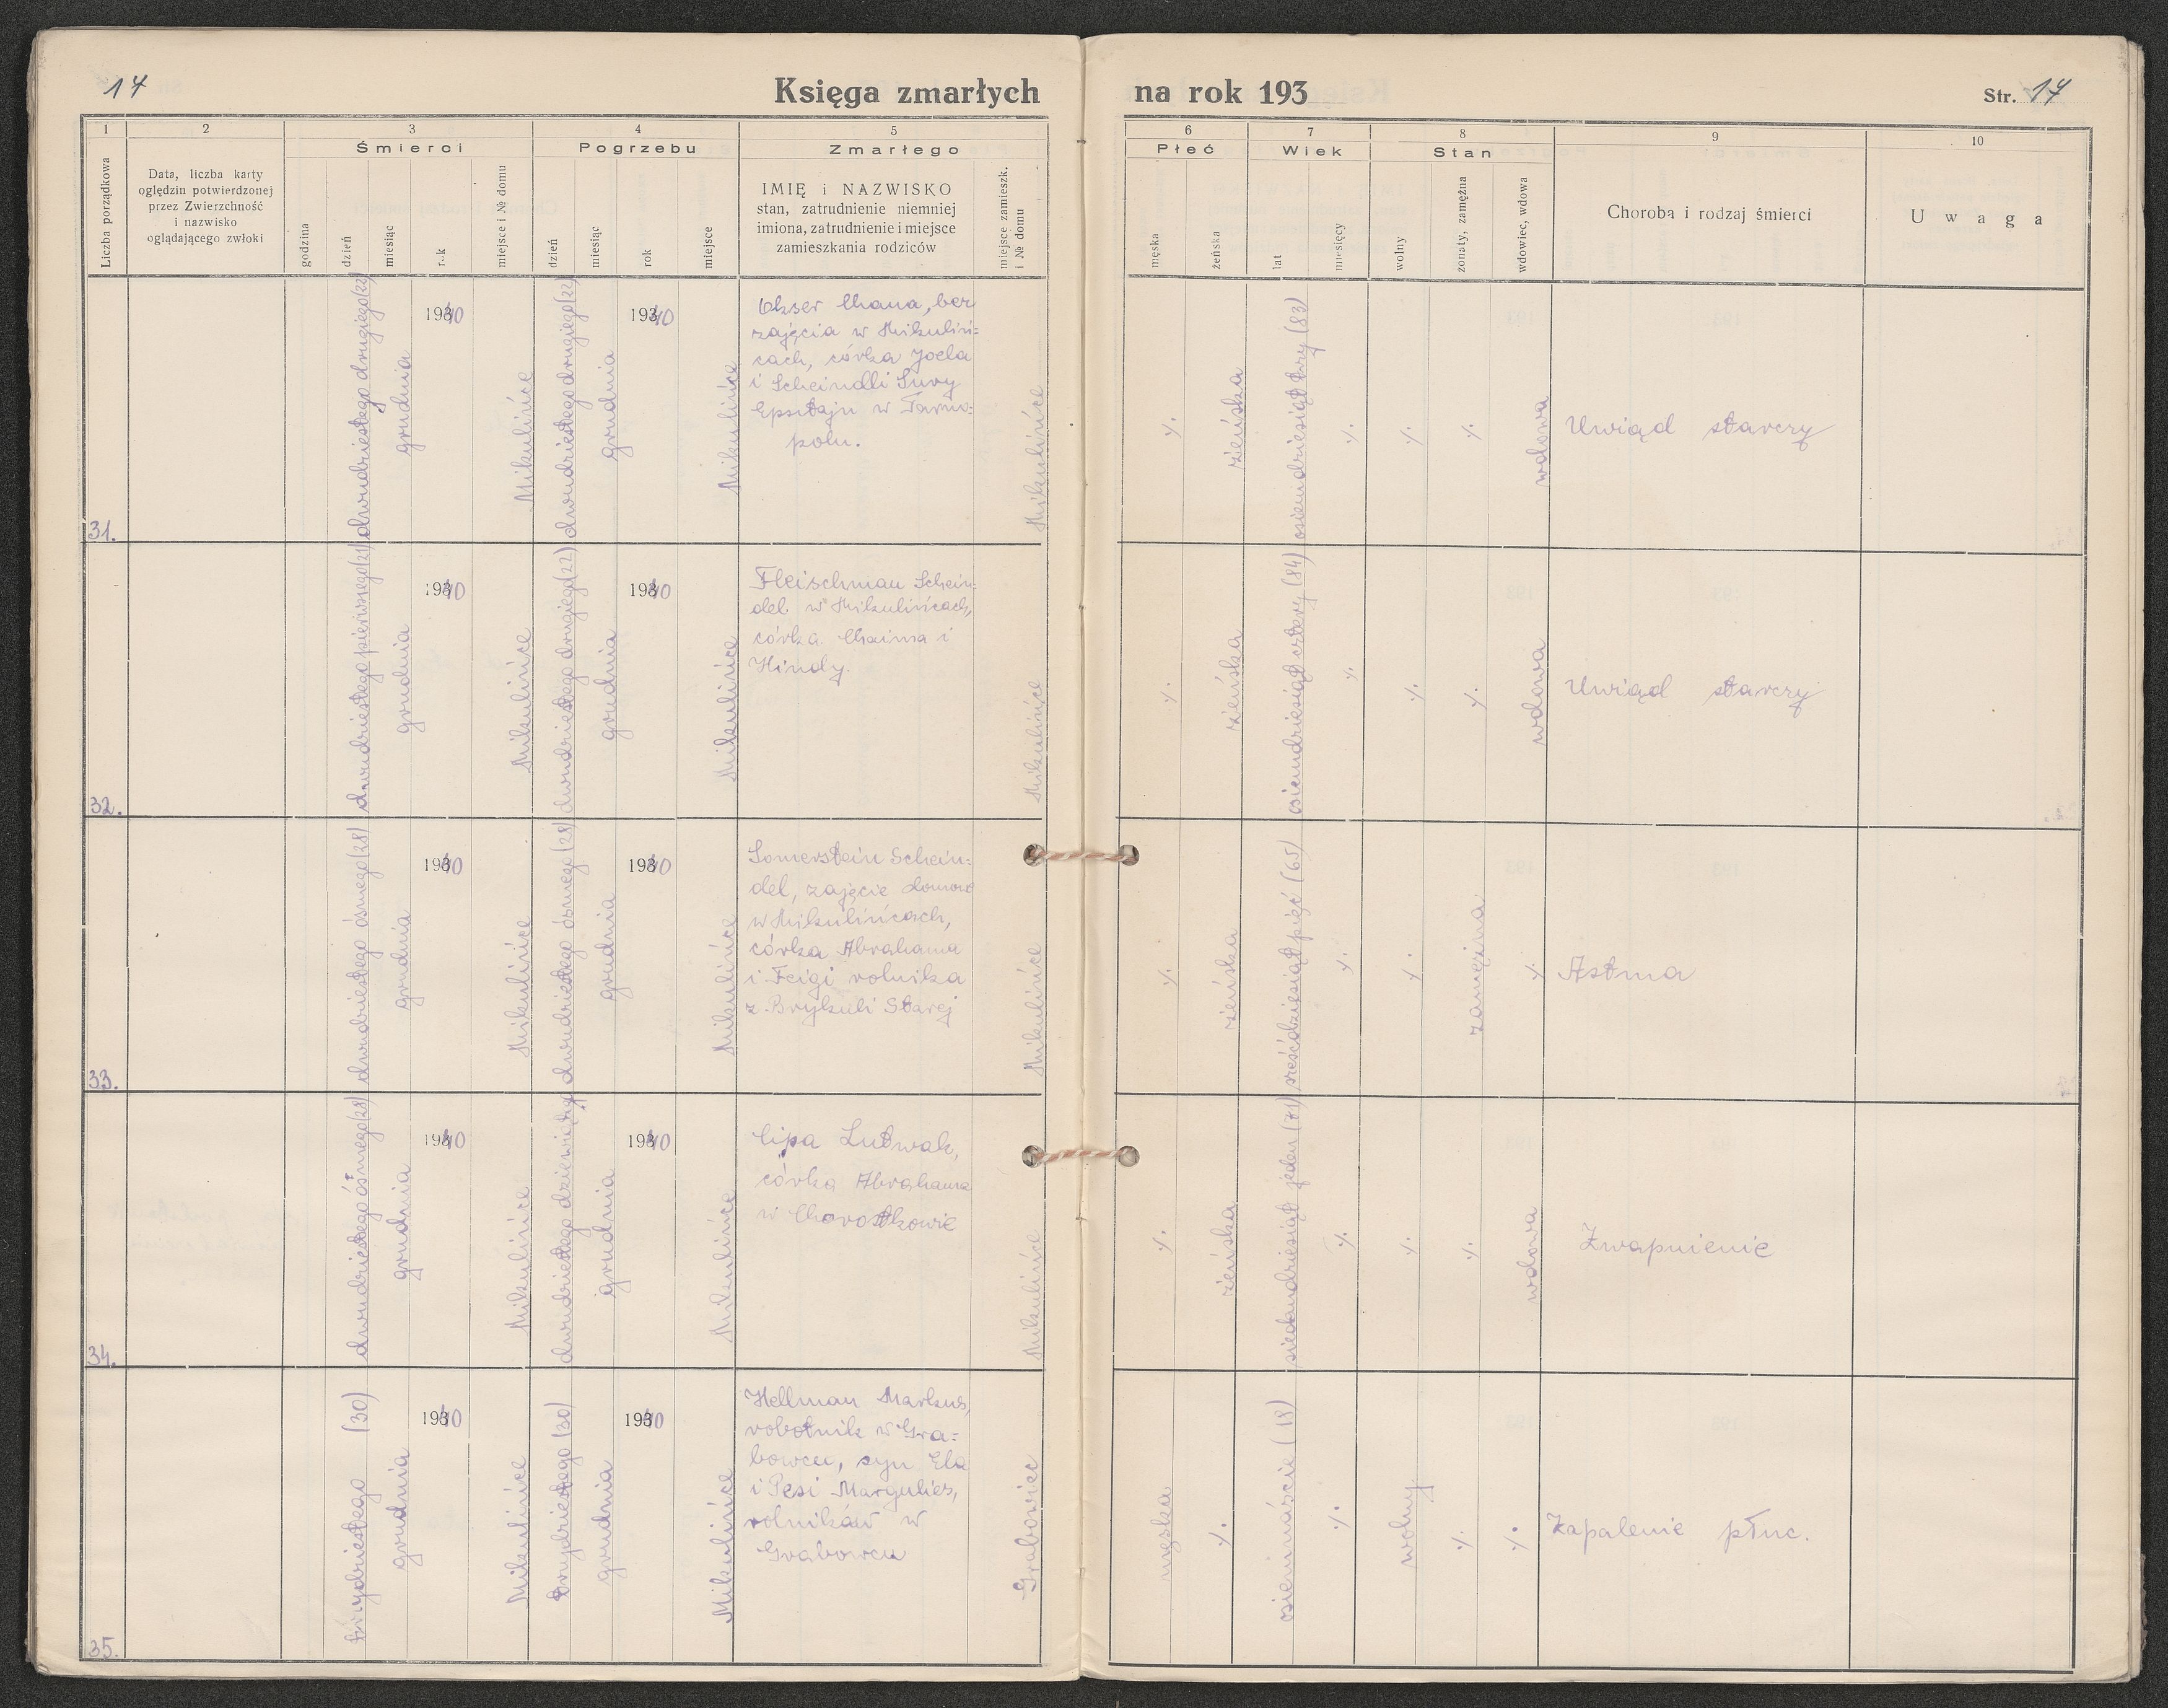 14
Księga zmarłych na rok 193
Str. 14
1
2
3
4
5
6
7
8
9
10
Śmierci
Pogrzebu
Zmarłego
Płeć
Wiek
Stan
Liczba porządkowa
Data, liczba karty
oględzin potwierdzonej
przez Zwierzchność
i nazwisko
oglądającego zwłoki
godzina
dzień
miesiąc
rok
miejsce i № domu
dzień
miesiąc
rok
miejsce
IMIĘ i NAZWISKO
stan, zatrudnienie niemniej
imiona, zatrudnienie i miejsce
zamieszkania rodziców
miejsce zamieszk.
i № domu
męska
żeńska
lat
miesięcy
wolny
żonaty, zamężna
wdowiec, wdowa
Choroba i rodzaj śmierci
Uwaga
31.
dwudziestego drugiego (22)
grudnia
1940
Mikulińce
dwudziestego drugiego (22)
grudnia
1940
Mikulińce
Okser Chana, bez
zajęcia w Mikuliń=
cach, córka Joela
i Scheindli Sury
Epsztajn w Tarno=
polu.
Mikulińce
./.
żeńska
osiemdziesiąt trzy (83)
./.
./.
./.
wdowa
Uwiąd starczy
32.
dwudziestego pierwszego (21)
grudnia
1940
Mikulińce
dwudziestego drugiego (22)
grudnia
1940
Mikulińce
Fleischman Schein=
del w Mikulińcach,
córka Chaima i
Hindy.
Mikulińce
./.
żeńska
osiemdziesiąt cztery (84)
./.
./.
./.
wdowa
Uwiąd starczy
33.
dwudziestego ósmego (28)
grudnia
1940
Mikulińce
dwudziestego ósmego (28)
grudnia
1940
Mikulińce
Somerstein Schein=
del, zajęcie domowe
w Mikulińcach,
córka Abrahama
i Feigi rolnika
z Brykuli Starej
Mikulińce
./.
żeńska
sześćdziesiąt pięć (65)
./.
./.
zamężna
./.
Astma
34.
dwudziestego ósmego (28)
grudnia
1940
Mikulińce
dwudziestego
grudnia
1940
Mikulińce
Cipa Lutwak,
córka Abrahama
w Chorostkowie
Mikulińce
./.
żeńska
siedemdziesiąt jeden (71)
./.
./.
./.
wdowa
Zwapnienie
35.
trzydziestego (30)
grudnia
1940
Mikulińce
trzydziestego (30)
grudnia
1940
Mikulińce
Hellman Markus,
robotnik w Gra=
bowcu, syn Ela
i Pesi Margulies,
rolników w
Grabowcu
Grabowiec
męska
./.
osiemnaście (18)
./.
wolny
./.
./.
Zapalenie płuc.